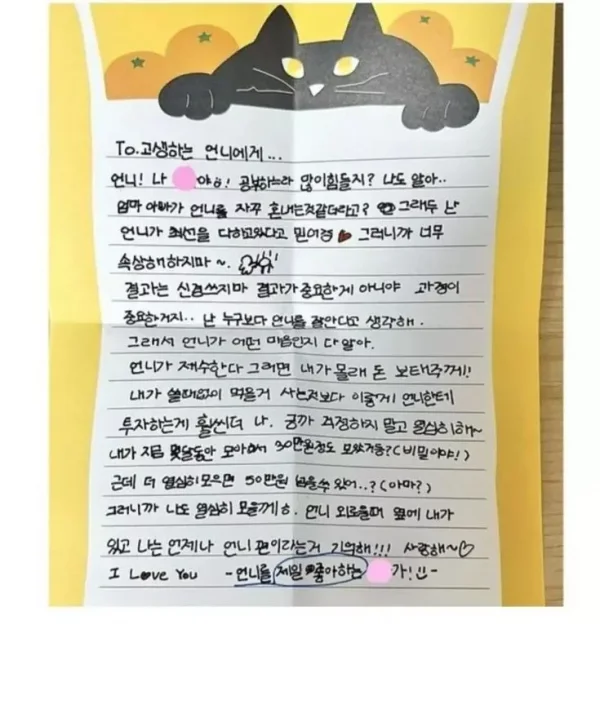 To.고생하는 언니에게...
언니! 나 야ㅎ! 공부하느라 많이힘들지? 나도 알아..
엄마 아빠가 언니를 자꾸 혼내는것같더라고? 그래두 난
언니가 최선을 다하고있다고 믿어경 그러니까 너무
속상해하지마~.
결과는 신경쓰지마 결과가 중요한게 아니야 과정이
중요한거지.. 난 누구보다 언니를 잘안다고 생각해.
그래서 언니가 어떤 마음인지 다 알아.
언니가 재수한다 그러면 내가몰래 돈 보태주께!!
내가 쓸때없이 먹을거 사는것보다 이렇게 언니한테
투자하는게 훨씬더 나. 긍까 걱정하지 말고 열심히해~
내가 지금 몇달동안 모아놔서 30만원정도 모았거등?(비밀이야!)
근데 더 열심히모으면 50만원 넘을수 있어..?(아마?)
그러니까 나도 열심히 모을께ㅎ. 언니 외로울때 옆에 내가
있고 나는 언제나 언니 편이라는거 기억해!!! 사랑해~♡
I Love You -언니를 제일 좋아하는 가!!-